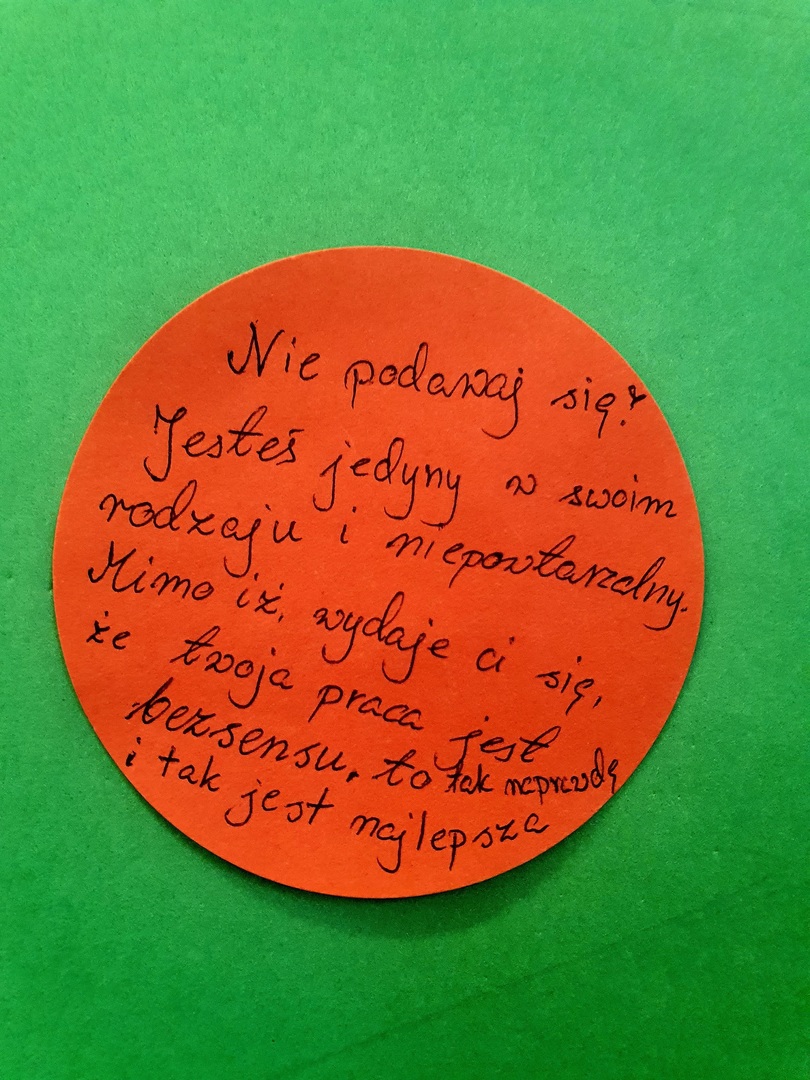 Nie podawaj się!
Jesteś jedyny w swoim
rodzaju i niepowtarzalny.
Mimo iż, wydaje ci się,
że twoja praca jest
bezsensu, to tak naprawdę
i tak jest najlepsza